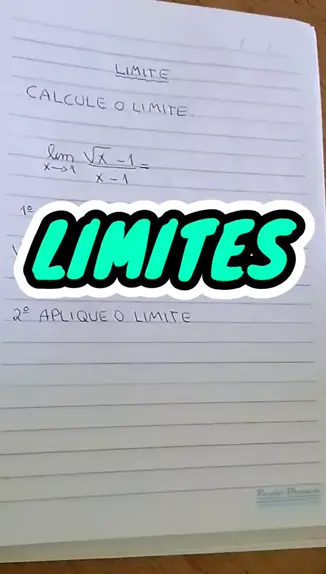 LIMITE
CALCULE O LIMITE.
lim x→1 √x - 1 / x - 1 =
1º
LIMITES
2º APLIQUE O LIMITE